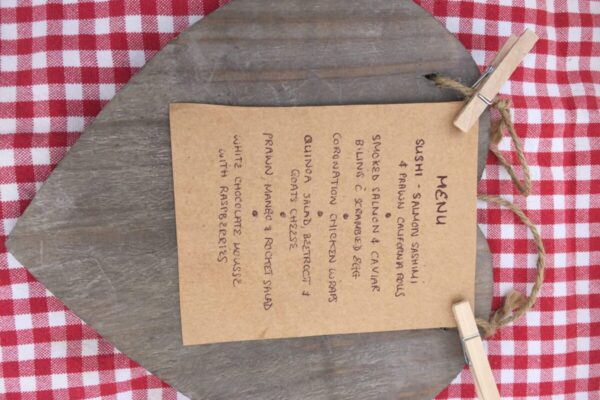 MENU
SUSHI - SALMON SASHIMI
& PRAWN CALIFORNIA ROLLS
SMOKED SALMON & CAVIAR
BLINIS & SCRAMBLED EGG
CORONATION CHICKEN WRAPS
QUINOA SALAD, BEETROOT &
GOATS CHEESE
PRAWN, MANGO & ROCKET SALAD
WHITE CHOCOLATE MOUSSE
WITH RASPBERRIES